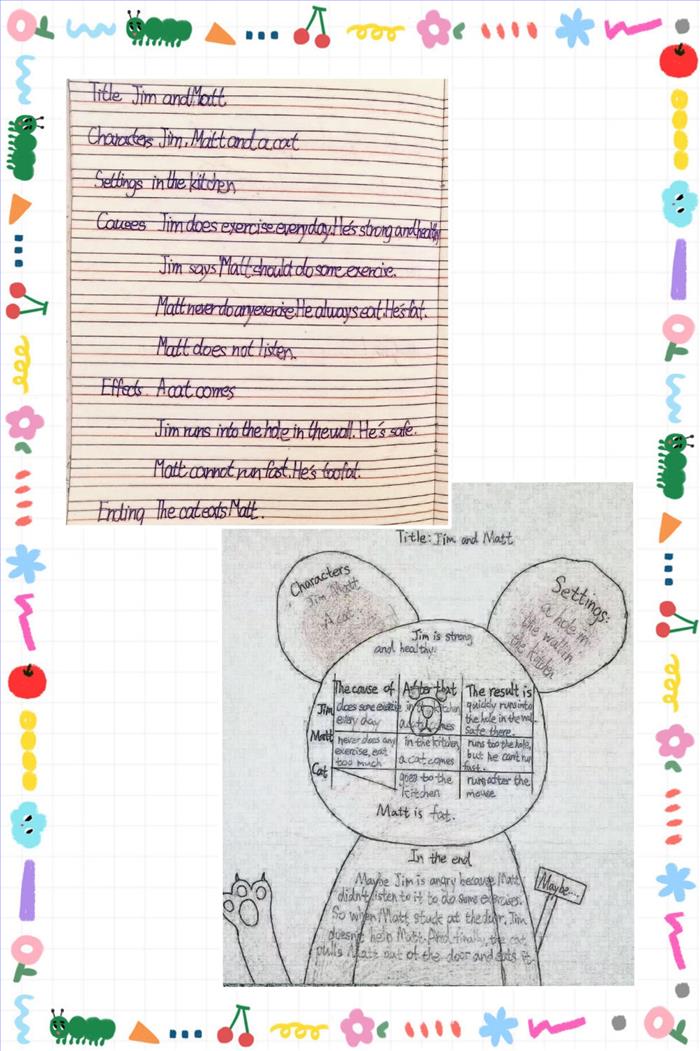 Title Jim and Matt
Characters Jim. Matt and a cat
Settings in the kitchen
Causes Jim does exercise every day. He's strong and healthy
Jim says Matt should do some exercise.
Matt never do any exercise. He always eat. He's fat.
Matt does not listen.
Effects A cat comes
Jim runs into the hole in the wall. He's safe.
Matt cannot run fast. He's too fat.
Ending The cat eats Matt.
Title: Jim and Matt
Characters
Jim Matt
A cat
Settings:
a hole in
the wall in
the kitchen
Jim is strong
and healthy.
The cause of After that The result is
Jim does some exercise every day in the kitchen a cat comes quickly runs into the hole in the wall. Safe there.
Matt never does any exercise, eat too much in the kitchen a cat comes runs too the hole, but he can't run fast.
Cat goes to the kitchen runs after the mouse
Matt is fat.
In the end
Maybe Jim is angry because Matt
didn't listen to it to do some exercises.
So when Matt stuck at the door, Jim
doesn't help Matt. And finally, the cat
pulls Matt out of the door and eats it.
Maybe...